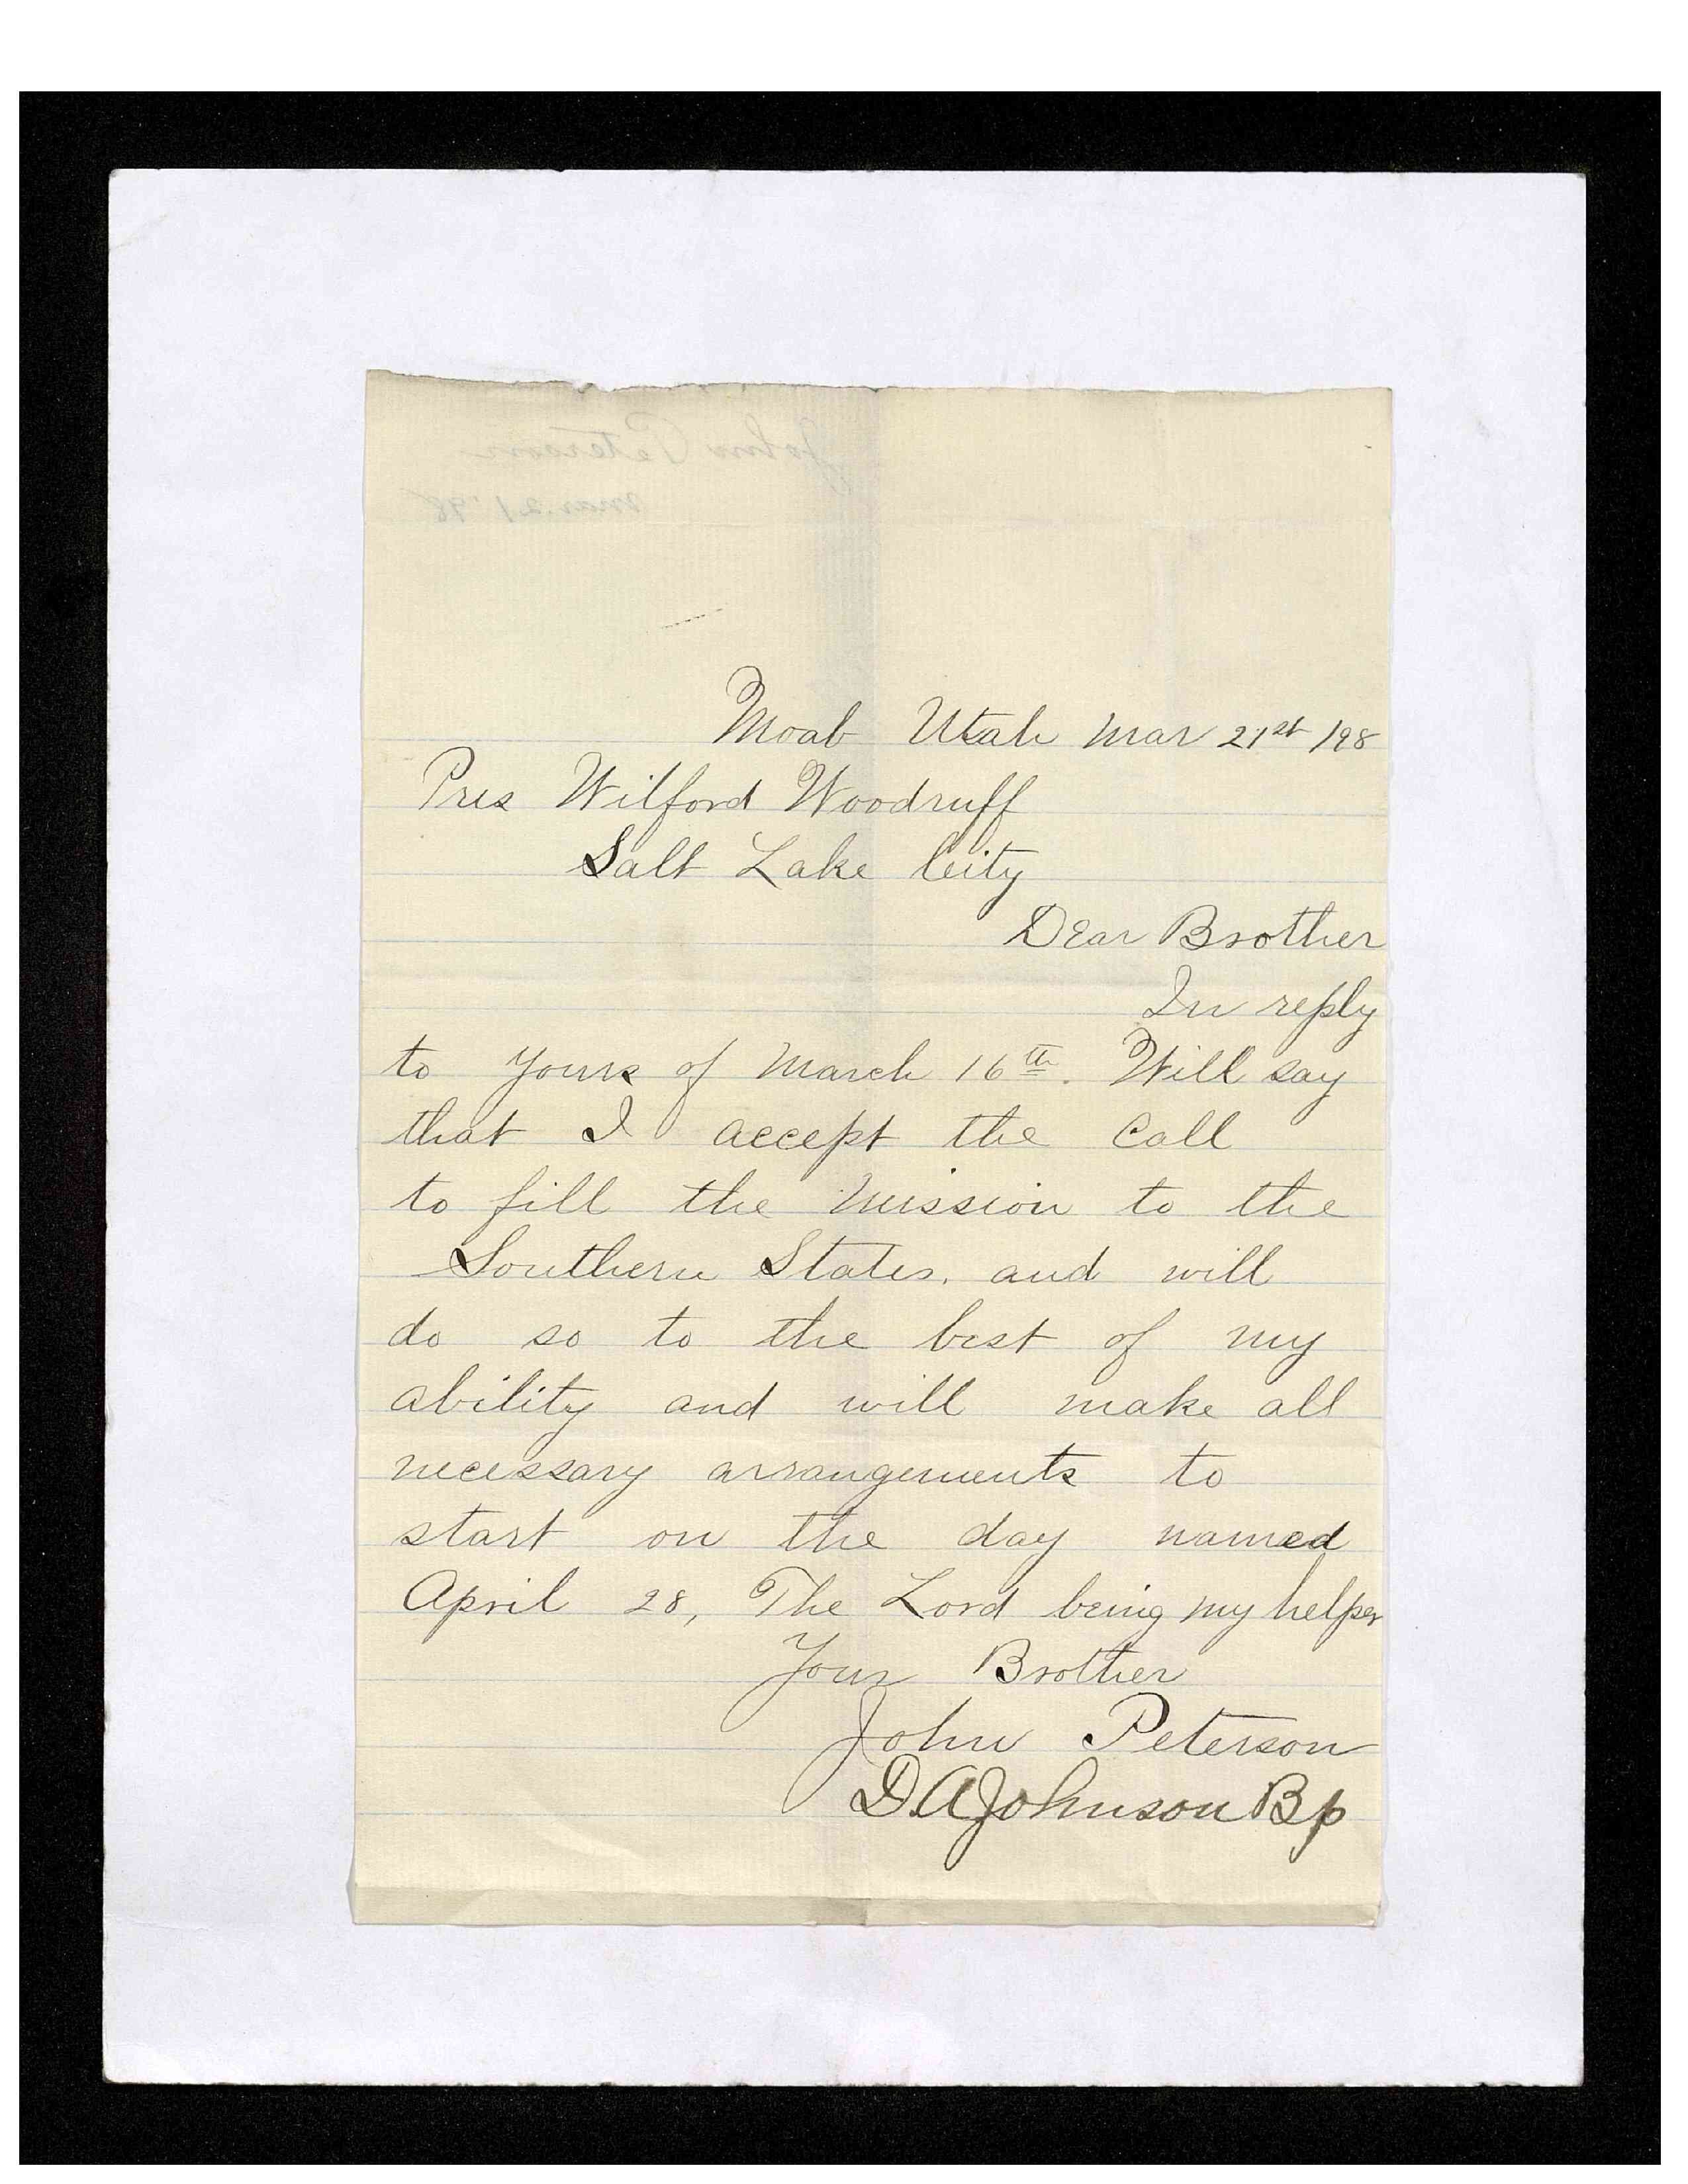 John Peterson
Mar. 21 '98
Moab Utah Mar 21st /98
Pres Wilford Woodruff
Salt Lake City
Dear Brother
In reply
to yours of March 16th. Will say
that I accept the call
to fill the mission to the
Southern States. and will
do so to the best of my
ability and will make all
necessary arrangements to
start on the day named
April 28, The Lord being my helper
Your Brother
John Peterson
D. A. Johnson Bp